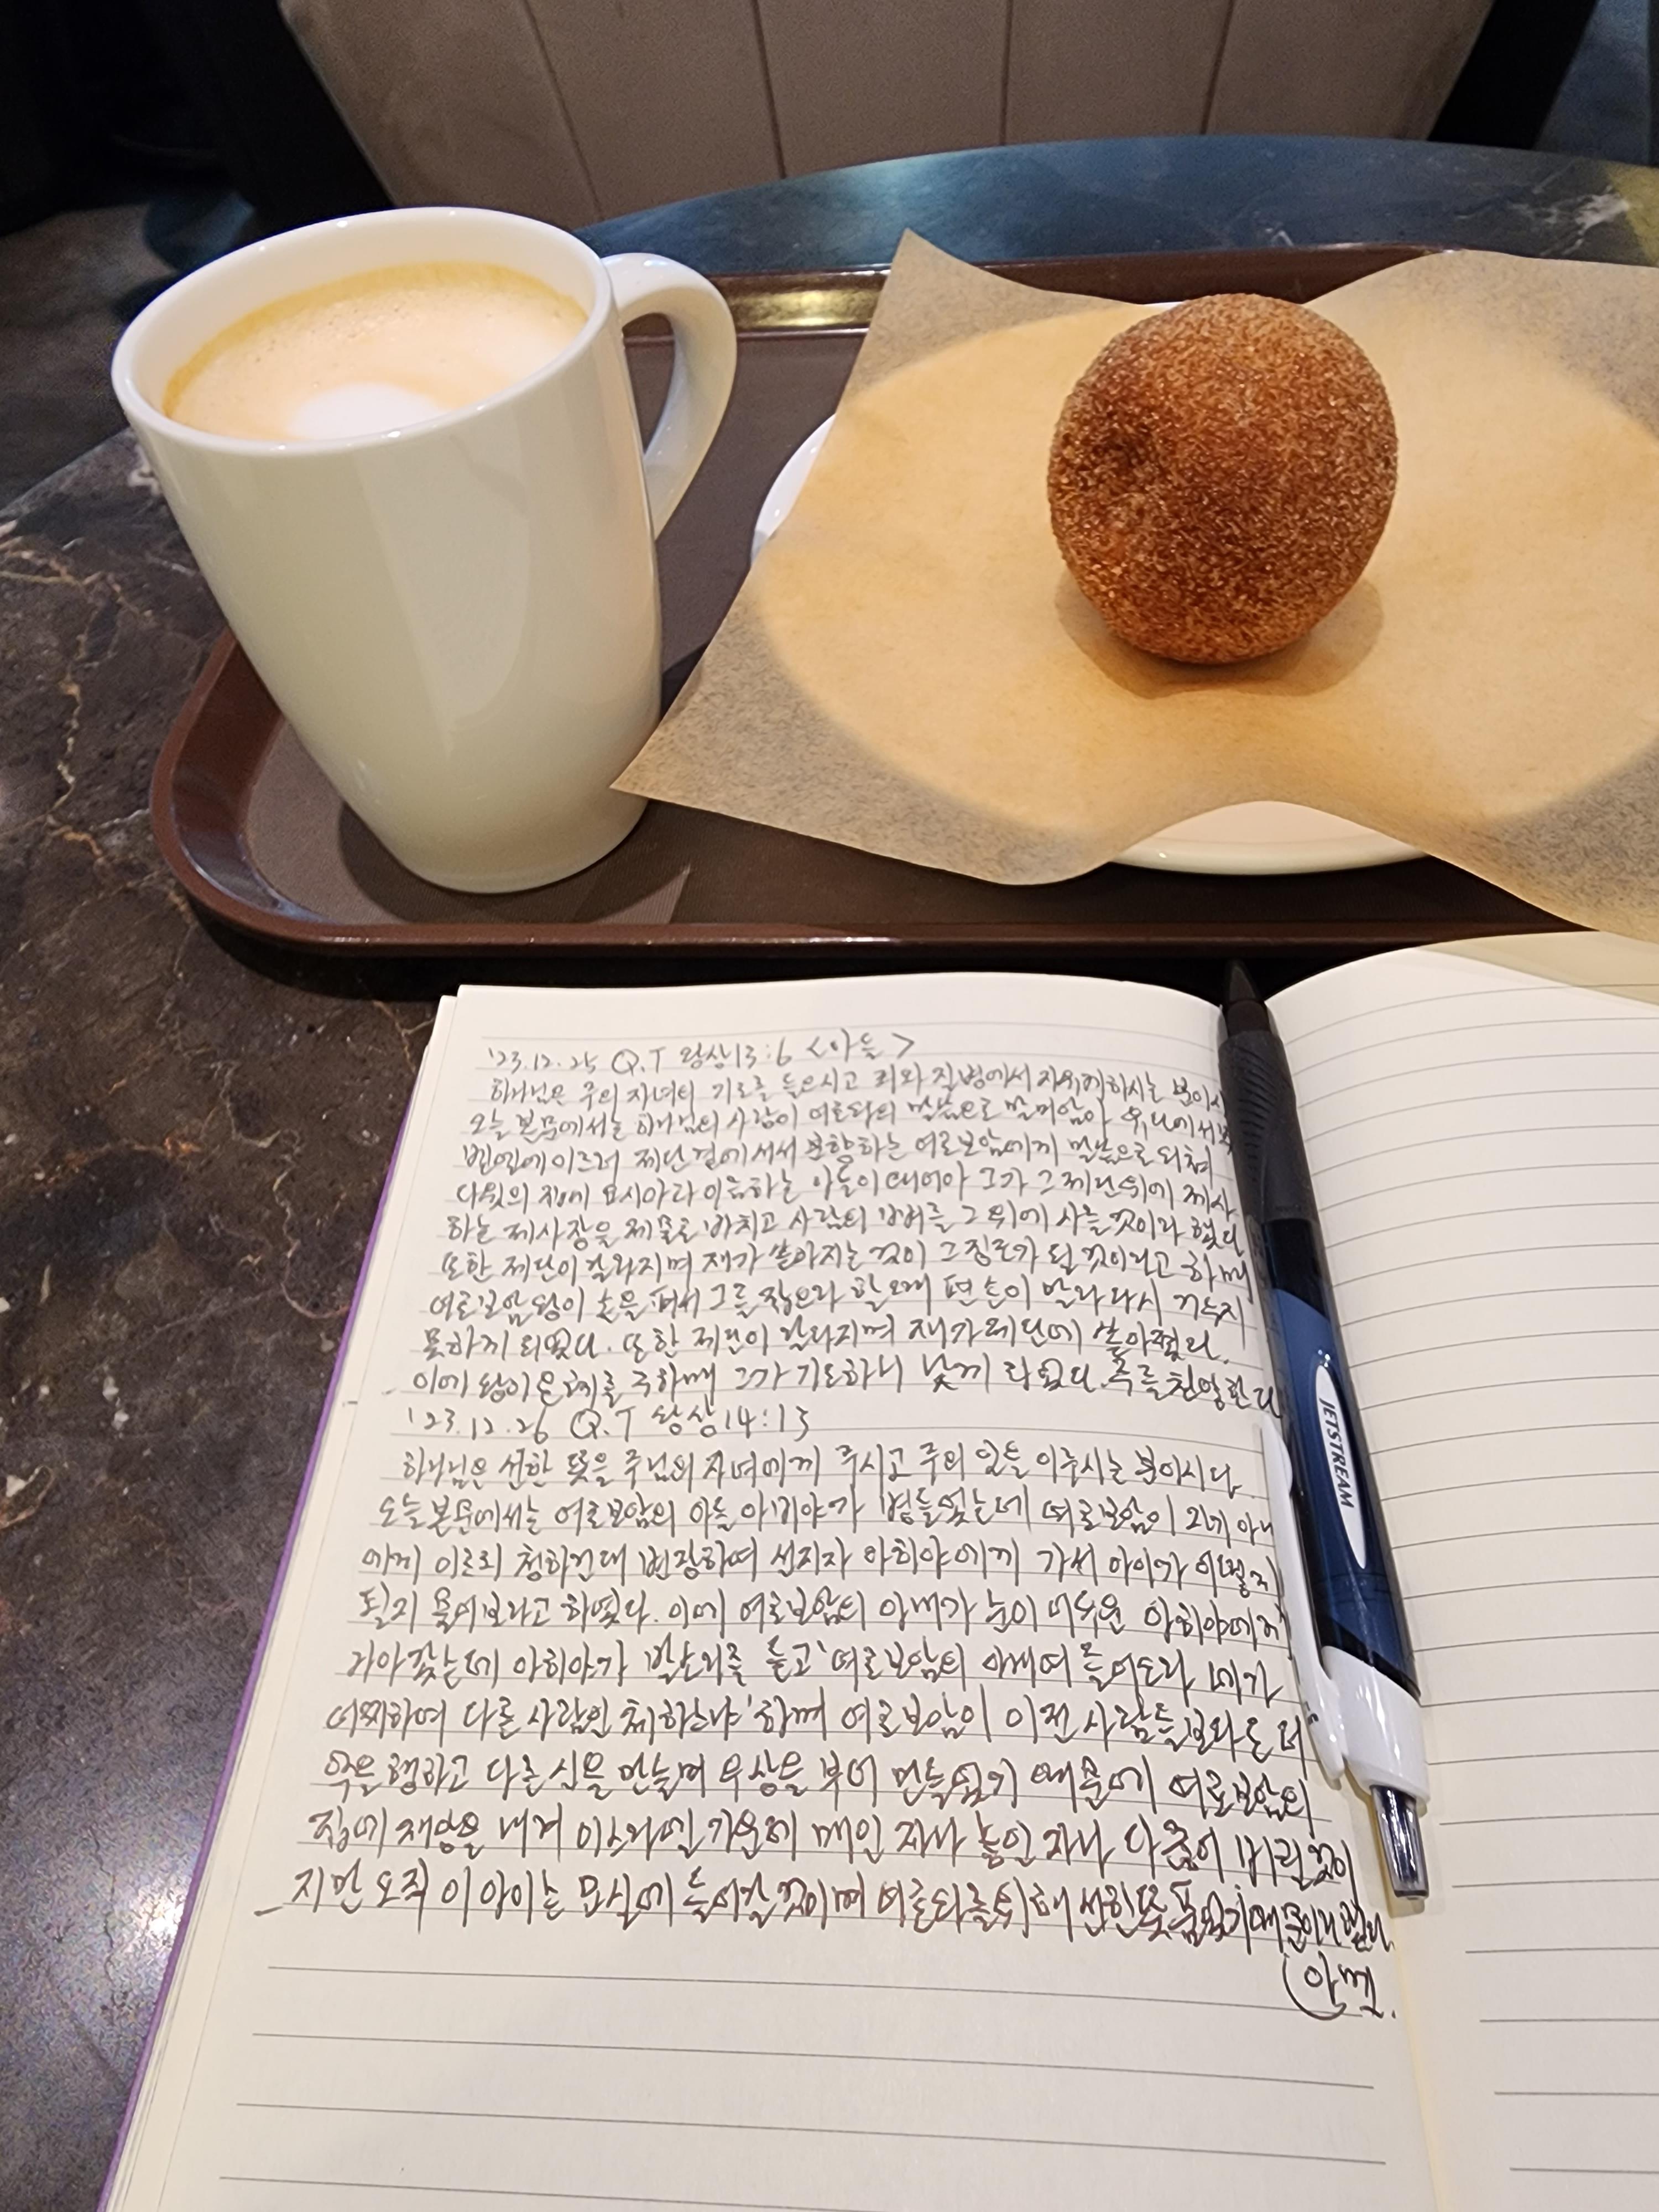 '23.12.25 Q.T 왕상13:6 <아들>
하나님은 주의 자녀의 기도를 들으시고 죄와 질병에서 자유케하시는 분이시
오늘 본문에서는 하나님의 사람이 여호와의 말씀으로 말미암아 유다에서부
벧엘에 이르러 제단 곁에 서서 분향하는 여로보암에게 말씀으로 외쳐
다윗의 집에 요시아라 이름하는 아들이 태어나 그가 그 제단위에 제사
하는 제사장을 제물로 바치고 사람의 뼈를 그 위에 사를 것이라 했다
또한 제단이 갈라지며 재가 쏟아지는 것이 그 징조가 될 것이라고 하매
여로보암왕이 손을 펴서 그를 잡으라 할 때에 편 손이 말라 다시 거두지
못하게 되었다. 또한 제단이 갈라지며 재가 제단에 쏟아졌다.
이에 왕이 은혜를 구하매 그가 기도하니 낫게 되었다. 주를 찬양한다
'23.12.26 Q.T 왕상14:13
하나님은 선한 뜻을 주님의 자녀에게 주시고 주의 일을 이루시는 분이시다
오늘 본문에서는 여로보암의 아들 아비야가 병들었는데 여로보암이 그의 아내
에게 이르되 청하건대 변장하여 선지자 아히야에게 가서 아이가 어떻게
될지 물어보라고 하였다. 이에 여로보암의 아내가 눈이 어두운 아히야에게
나아갔는데 아히야가 발소리를 듣고 '여로보암의 아내여 들어오라 네가
어찌하여 다른 사람인 체하느냐' 하며 여로보암이 이전 사람들보다도 더
악을 행하고 다른 신을 만들며 우상을 부어 만들었기 때문에 여로보암의
집에 재앙을 내려 이스라엘 가운데 매인 자나 놓인 자나 다 끊어 버릴 것이
지만 오직 이 아이는 묘실에 들어갈 것이며 여호와를 위해 선한 뜻 품었기 때문이라 했다.
아멘.
JETSTREAM